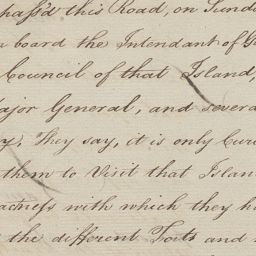 pass'd this Road, on Sund
board the Intendant of G
Council of that Island,
ajor General, and severa
They say, it is only Curi
them to Visit that Islan
actness with which they h
the different Forts and